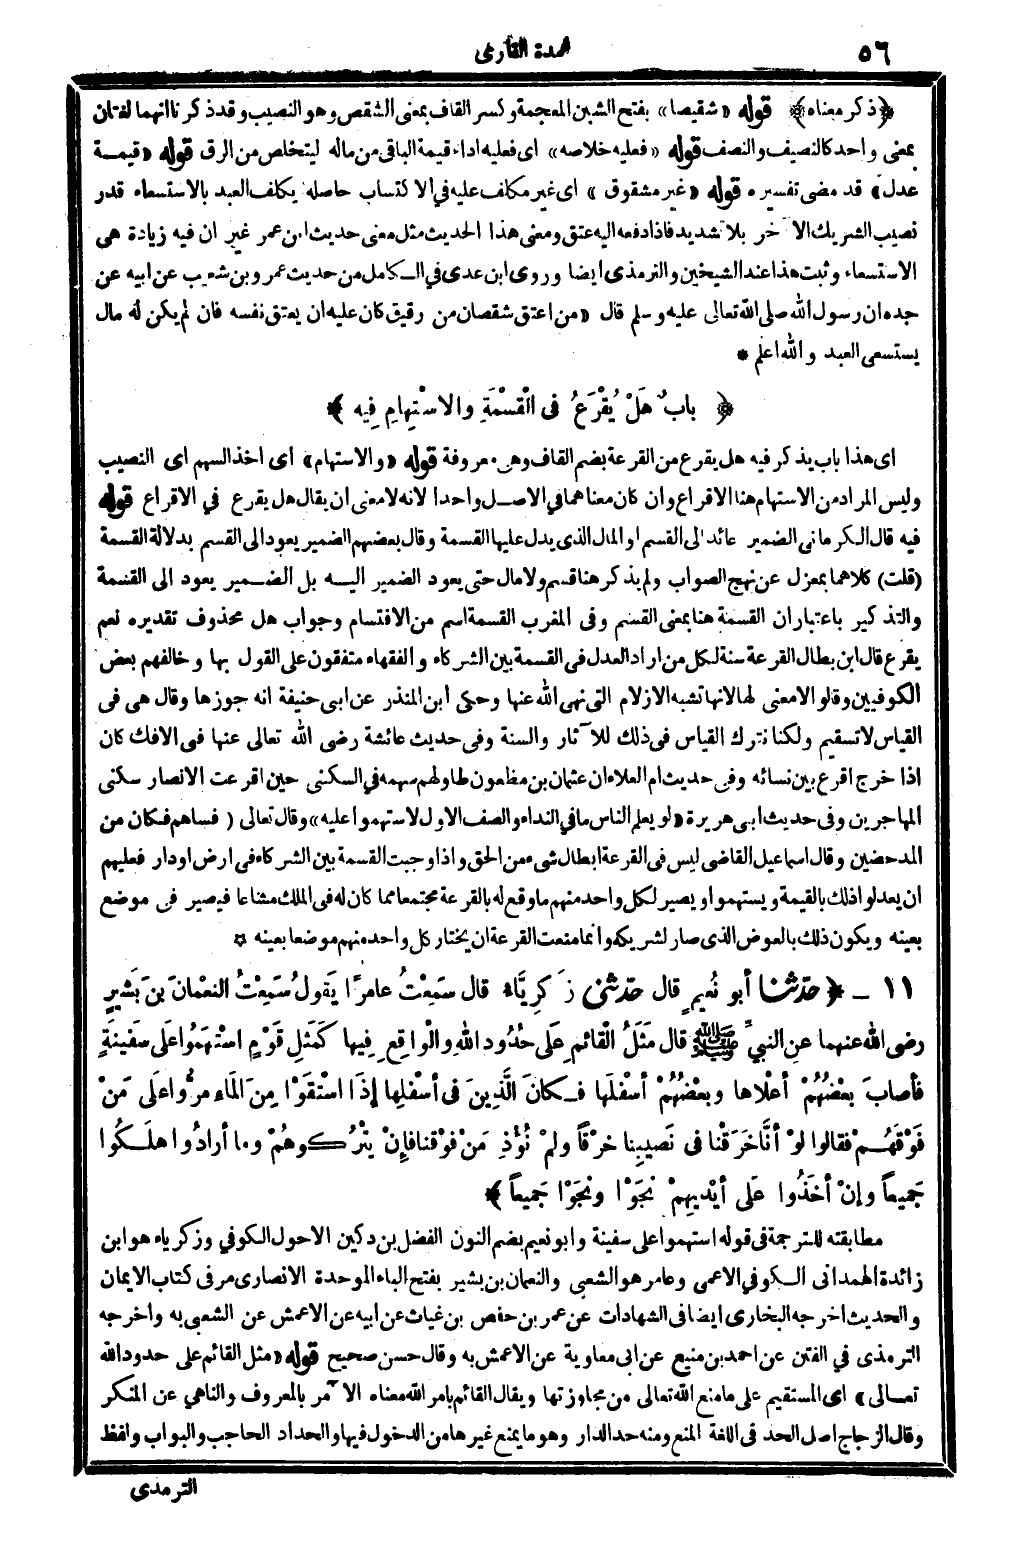 ٥٦
عمدة القارى
﴿ذكر معناه﴾ قوله «شقيصا» بفتح الشين المعجمة وكسر القاف بمعنى الشقص وهو النصيب وقد ذكرنا انهما لغتان
بمعنى واحد كالنصيف والنصف قوله «فعليه خلاصه» اى فعليه اداء قيمة الباقى من ماله ليتخلص من الرق قوله «قيمة
عدل» قد مضى تفسيره قوله «غير مشقوق» اى غير مكلف عليه في الاكتساب حاصله يكلف العبد بالاستسعاء قدر
نصيب الشريك الآخر بلا تشديد فاذا دفعه اليه عتق ومعنى هذا الحديث مثل معنى حديث ابن عمر غير ان فيه زيادة هى
الاستسعاء وثبت هذا عند الشيخين والترمذى ايضا وروى ابن عدى في الكامل من حديث عمرو بن شعيب عن ابيه عن
جده ان رسول الله صلى الله تعالى عليه وسلم قال «من اعتق شقصان من رقيق كان عليه ان يعتق نفسه فان لم يكن له مال
يستسعى العبد والله اعلم *
﴿ بابٌ هَلْ يُقْرَعُ فى الْقِسْمَةِ والاسْتِهامِ فِيه ﴾
اى هذا باب يذكر فيه هل يقرع من القرعة بضم القاف وهى معروفة قوله «والاستهام» اى اخذ السهم اى النصيب
وليس المراد من الاستهام هنا الاقراع وان كان معناهما في الاصل واحدا لانه لا معنى ان يقال هل يقرع في الاقراع قوله
فيه قال الكرمانى الضمير عائد الى القسم او المال الذى يدل عليها القسمة وقال بعضهم الضمير يعود الى القسم بدلالة القسمة
(قلت) كلاهما بمعزل عن نهج الصواب ولم يذكر هنا قسم ولا مال حتى يعود الضمير اليه بل الضمير يعود الى القسمة
والتذكير باعتبار ان القسمة هنا بمعنى القسم وفى المغرب القسمة اسم من الاقتسام وجواب هل محذوف تقديره نعم
يقرع قال ابن بطال القرعة سنة لكل من اراد العدل فى القسمة بين الشركاء والفقهاء متفقون على القول بها وخالفهم بعض
الكوفيين وقالوا لا معنى لها لانها تشبه الازلام التى نهى الله عنها وحكى ابن المنذر عن ابى حنيفة انه جوزها وقال هى فى
القياس لا تستقيم ولكنا نترك القياس فى ذلك للآثار والسنة وفى حديث عائشة رضى الله تعالى عنها فى الافك كان
اذا خرج اقرع بين نسائه وفى حديث ام العلاء ان عثمان بن مظعون طار لهم سهمه في السكنى حين اقرعت الانصار سكنى
المهاجرين وفى حديث ابى هريرة «لو يعلم الناس ما في النداء والصف الاول لاستهموا عليه» وقال تعالى (فساهم فكان من
المدحضين وقال اسماعيل القاضى ليس فى القرعة ابطال شىء من الحق واذا وجبت القسمة بين الشركاء فى ارض او دار فعليهم
ان يعدلوا ذلك بالقيمة ويستهموا ويصير لكل واحد منهم ما وقع له بالقرعة مجتمعا مما كان له فى الملك مشاعا فيصير فى موضع
بعينه ويكون ذلك بالعوض الذى صار لشريكه وانما منعت القرعة ان يختار كل واحد منهم موضعا بعينه *
١١ _ ﴿ حدّثنا أبو نُعيمٍ قال حدّثنى زَكَرِيَّاء قال سَمِعْتُ عامرًا يَقولُ سَمِعْتُ النعْمانَ بنَ بَشيرٍ
رضى الله عنهما عنِ النبيِّ ﷺ قال مَثَلُ الْقائمِ عَلَى حُدُودِ اللهِ والْواقِعِ فِيها كَمَثَلِ قَوْمٍ اسْتَهَمُوا عَلَى سَفينَةٍ
فأصابَ بعْضُهُمْ أعْلاها وبعْضُهُمْ أسْفَلَها فَكانَ الَّذِينَ فى أسْفَلِها إذَا اسْتَقَوْا مِنَ المَاءِ مرُّوا عَلَى مَنْ
فَوْقَهُمْ فقالوا لوْ أنَّا خَرَقْنا فى نَصيبِنا خرْقاً ولمْ نُؤْذِ مَنْ فوْقنا فإنْ يتْرُكوهُمْ وما أرادُوا هلَكُوا
جَميعاً وإنْ أخَذُوا عَلَى أيْديهِمْ نَجَوْا ونَجَوْا جَميعاً ﴾
مطابقته للترجمة فى قوله استهموا على سفينة وابو نعيم بضم النون الفضل بن دكين الاحول الكوفي وزكرياء هو ابن
زائدة الهمدانى الكوفى الاعمى وعامر هو الشعبي والنعمان بن بشير بفتح الباء الموحدة الانصارى مر فى كتاب الايمان
والحديث اخرجه البخارى ايضا فى الشهادات عن عمر بن حفص بن غياث عن ابيه عن الاعمش عن الشعبى به واخرجه
الترمذى في الفتن عن احمد بن منيع عن ابى معاوية عن الاعمش به وقال حسن صحيح قوله «مثل القائم على حدود الله
تعالى» اى المستقيم على ما منع الله تعالى من مجاوزتها ويقال القائم بامر الله معناه الآمر بالمعروف والناهي عن المنكر
وقال الزجاج اصل الحد فى اللغة المنع ومنه حد الدار وهو ما يمنع غيرها من الدخول فيها والحداد الحاجب والبواب ولفظ
الترمذى